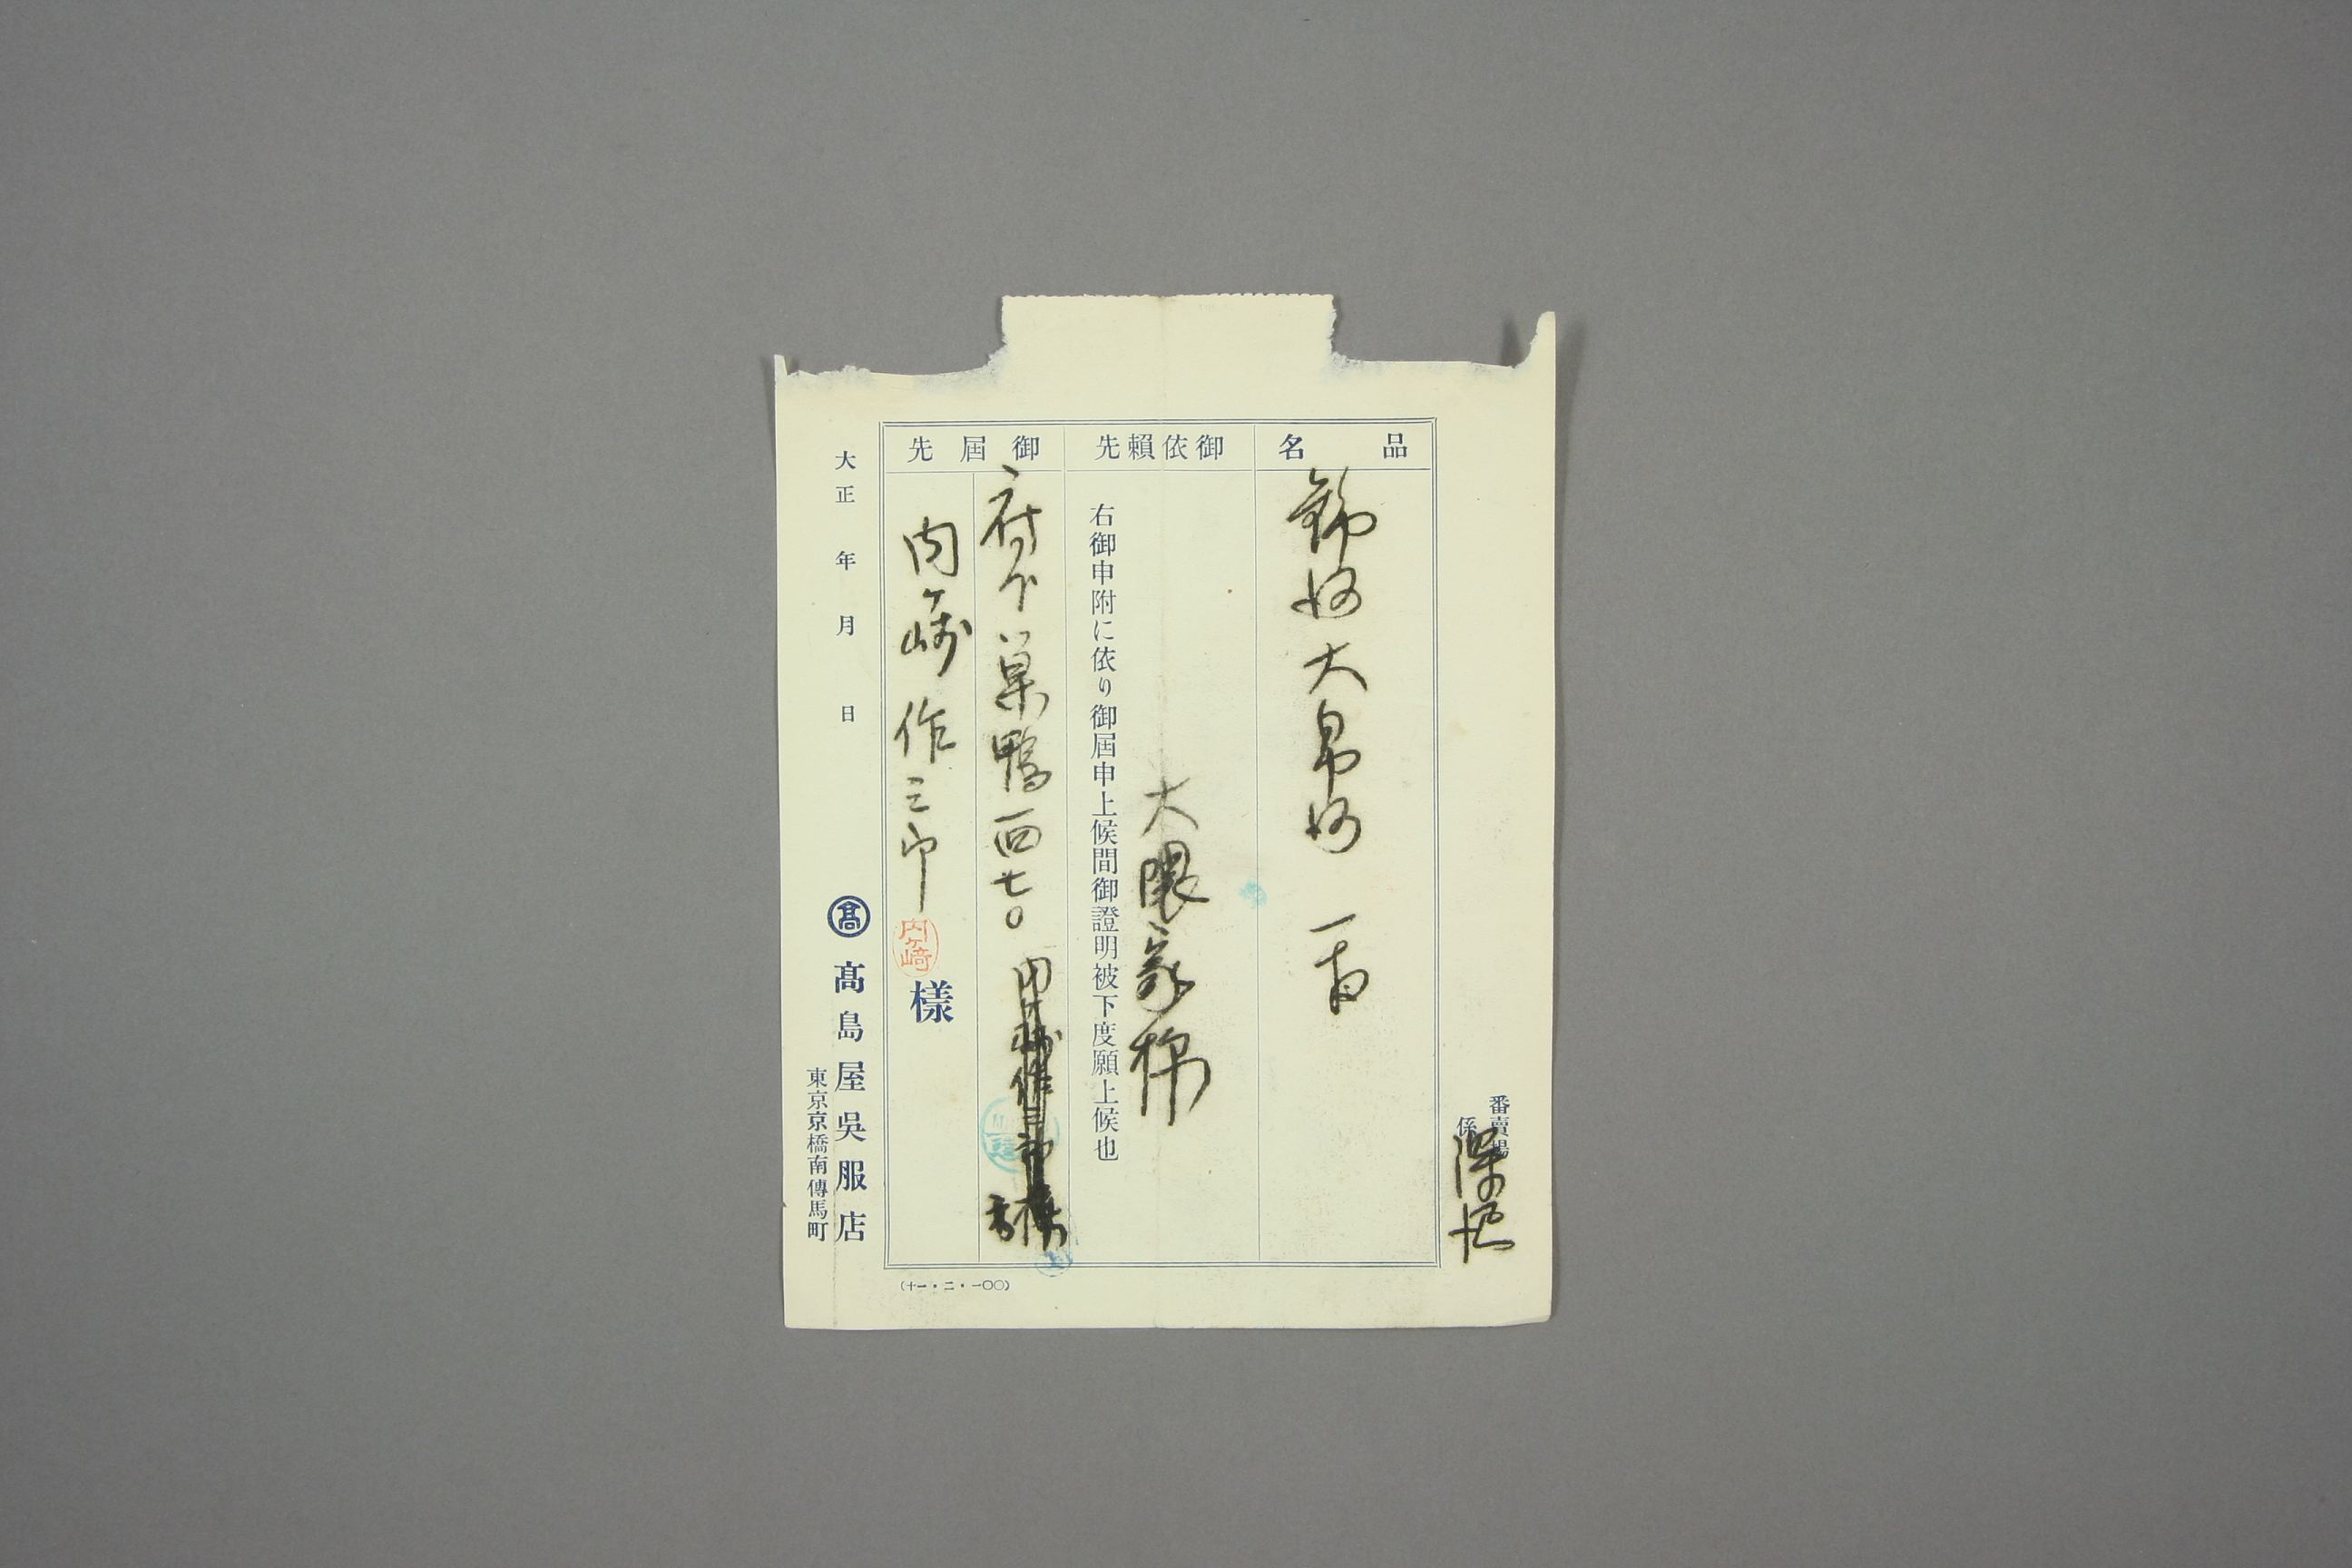 番賣場
係
品名
大
一
御依賴先
大隈家様
右御申附に依り御屆申上候間御證明被下度願上候也
御屆先
府下巣鴨一四七〇
内ヶ崎作三郎
内ヶ崎
樣
大正 年 月 日
髙
髙島屋吳服店
東京京橋南傳馬町
(十一・二・一〇〇)